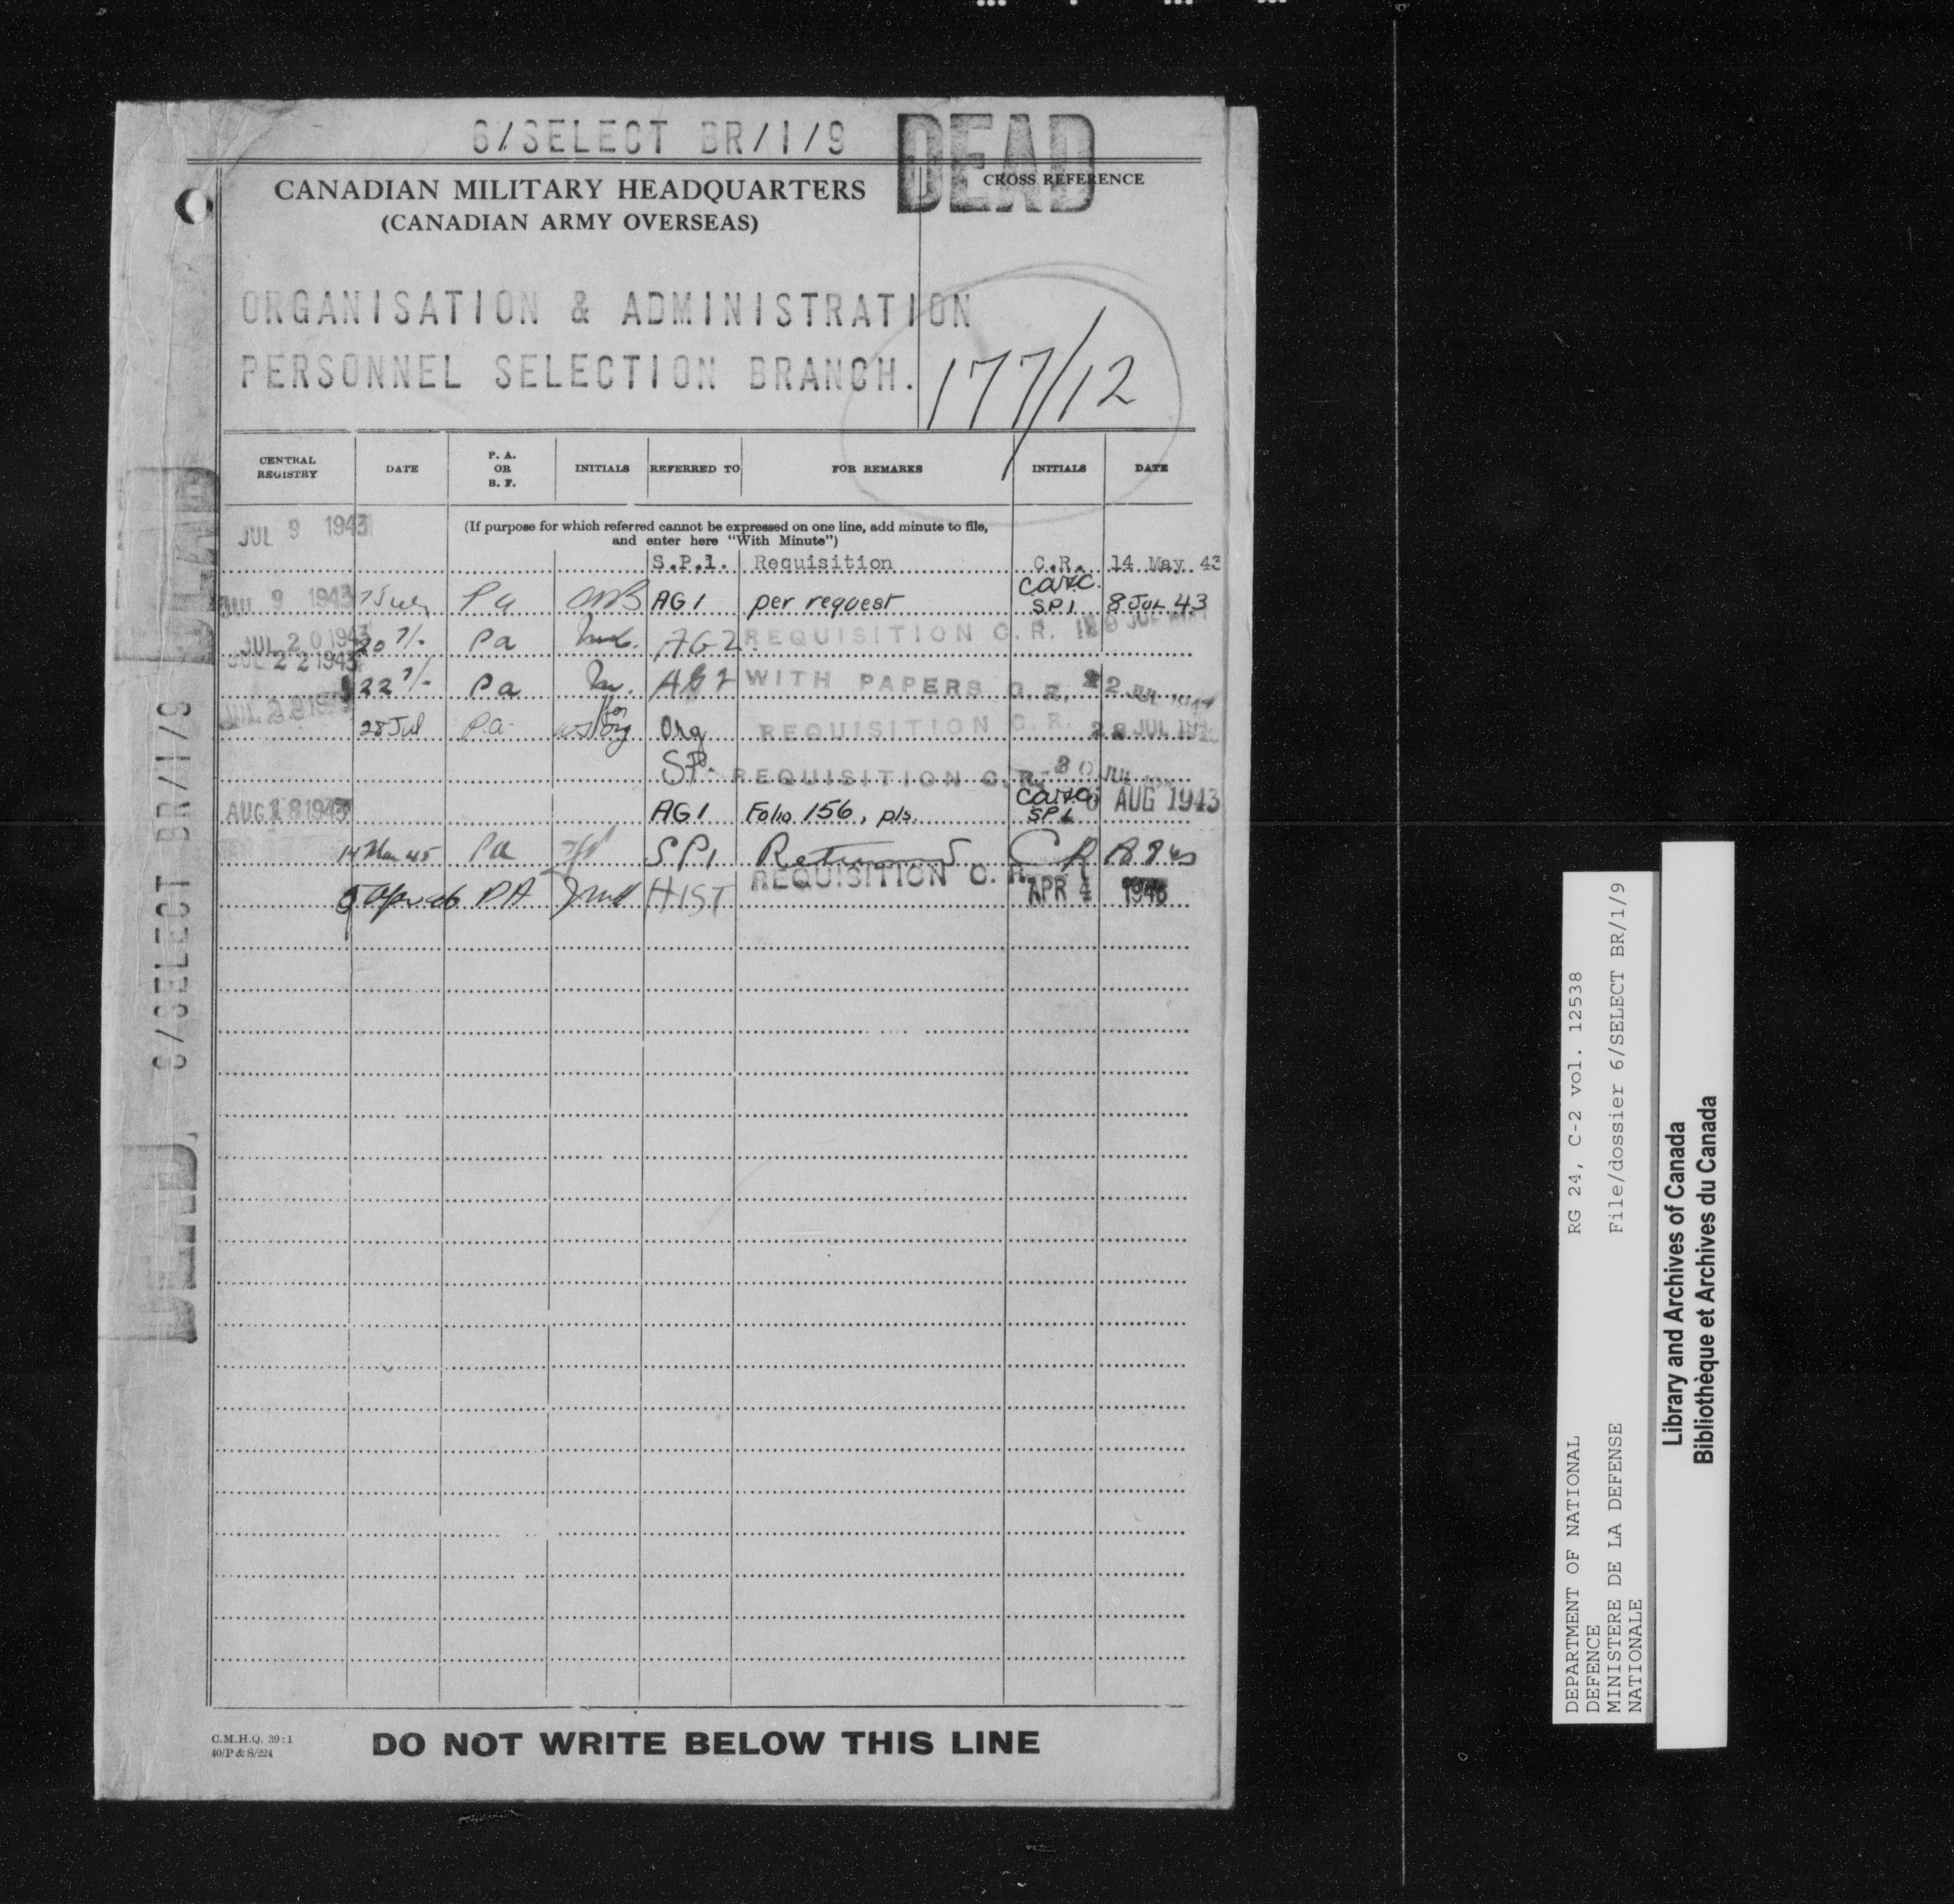 6/SELECT BR/1/9
DEAD
CANADIAN MILITARY HEADQUARTERS
(CANADIAN ARMY OVERSEAS)
CROSS REFERENCE
ORGANISATION & ADMINISTRATION
PERSONNEL SELECTION BRANCH.
177/12
CENTRAL REGISTRY DATE P. A. OR B. F. INITIALS REFERRED TO FOR REMARKS INITIALS DATE
JUL 9 1943
(If purpose for which referred cannot be expressed on one line, add minute to file,
and enter here "With Minute")
S.P.1. Requisition C.R. 14 May 43
JUL 9 1943 Pa AG1 per request SP1 8 JUL 43
JUL 20 1943 20 7/- Pa AG2 REQUISITION C.R.
JUL 22 1943 22 7/- Pa AG2 WITH PAPERS C.R. 22 JUL
28 Jul P.a. Org REQUISITION C.R. 28 JUL 1943
SP. REQUISITION C.R. 30 JUL
AUG 18 1943 AG1 Folio 156, pls. SP1 AUG 1943
14 Mar 45 Pa SP1 Returned CR
PA HIST REQUISITION C.R. APR 4 1946
6/SELECT BR/1/9
C.M.H.Q. 39:1
40/P & S/224
DO NOT WRITE BELOW THIS LINE
DEPARTMENT OF NATIONAL
DEFENCE
MINISTERE DE LA DEFENSE
NATIONALE
RG 24, C-2 vol. 12538
File/dossier 6/SELECT BR/1/9
Library and Archives of Canada
Bibliothèque et Archives du Canada